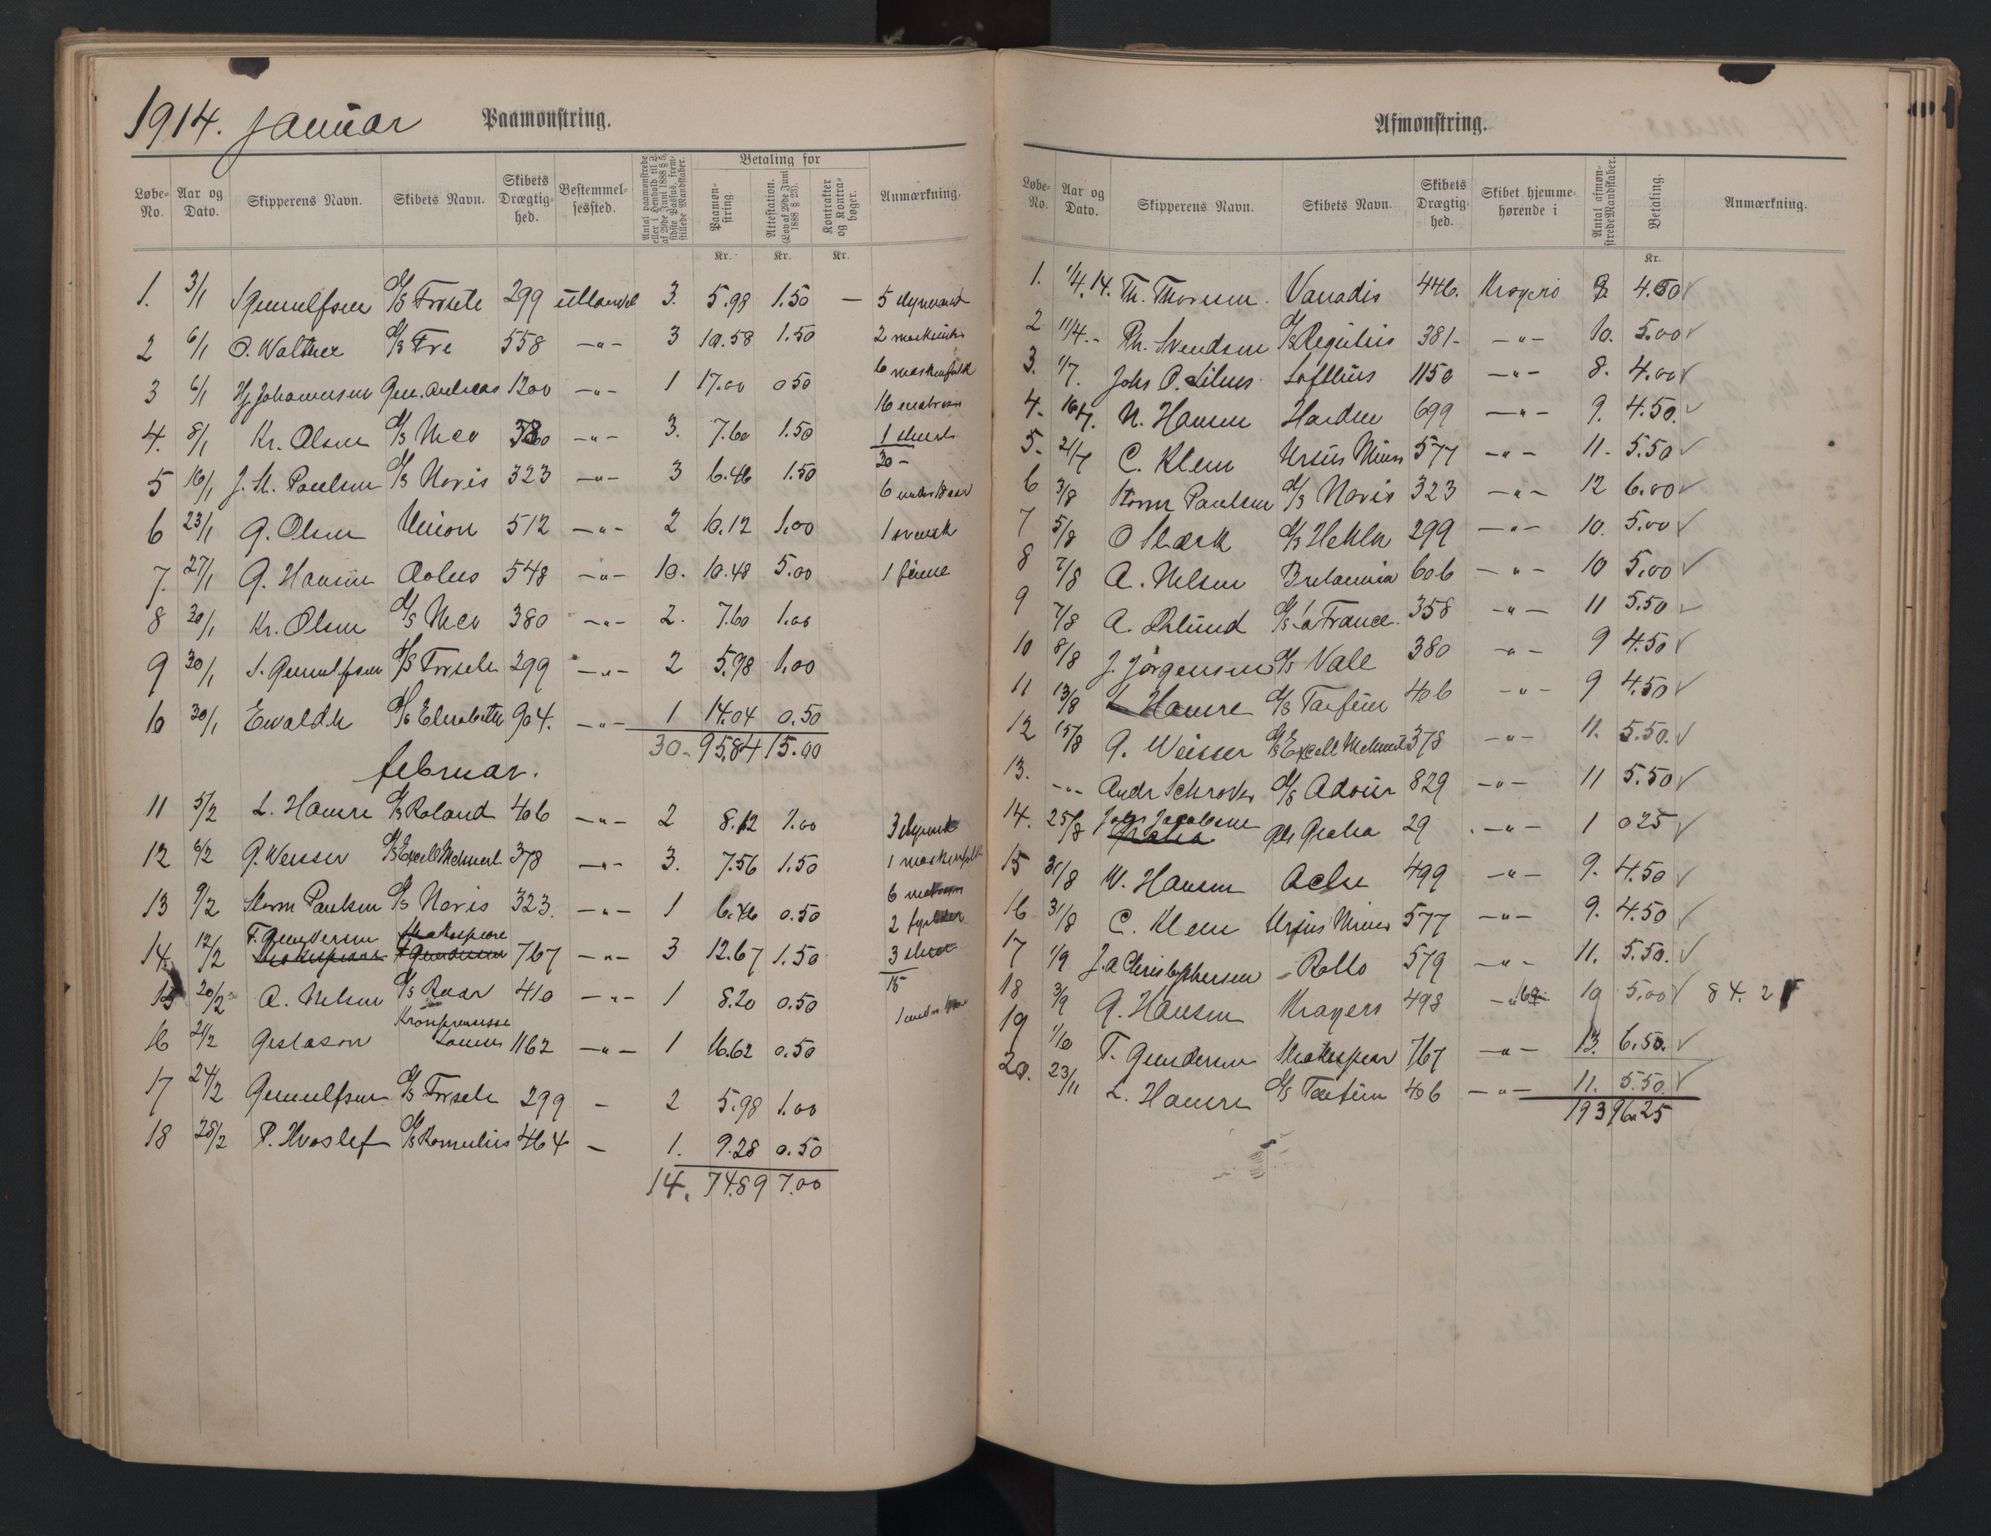 1914. Januar Paamønstring.
Løbe-No. Aar og Dato. Skipperens Navn. Skibets Navn. Skibets Drægtighed. Bestemmelsessted. Antal paamønstrede eller i Henhold til L. af 29de Juni 1888 § 5, sidste Passus, fremstillede Mandskaber. Betaling for Paamønstring. Attestation. (Lov af 29de Juni 1888 § 23). Kontrakter og Kontrabøger. Anmærkning.
Kr. Kr. Kr.
1. 3/1 Gunulfsen S/S Forsete 299 utlandet 3. 5.98 1.50 —
2 6/1 O. Walther S/S Fre 558 —"— 3 10.58 1.50 2
3 6/1 Hj Johannesen Gen. Andreas 1200 —"— 1 17.00 0 50 6 maskinfolk
16
4. 8/1 Kr. Olsen S/S Neo 380 —"— 3. 7.60 1.50 1
30 –
5 16/1 J. St. Paulsen S/S Noris 323 —"— 3 6.46 1.50 6
6 23/1 G. Olsen Union 512 —"— 2 10.12 1.00 1 svensk
7. 27/1 G. Hansen Aolus 548 —"— 10. 10.48 5.00 1 finne
8 30/1 Kr. Olsen S/S Neo 380 —"— 2. 7.60 1.00
9 30/1 S. Gunulfsen S/S Forsete 299 —"— 2 5.98 1.00
10 30/1 Ewaldh S/S Elisabeth 904. —"— 1 14.04 0.50
30– 95.84 15.00
februar.
11 5/2 L. Hamre S/S Roland 406 —"— 2 8.12 1.00 3
12 6/2 G. Weisser S/S Excell Mehnert 378 —"— 3. 7.56 1.50 1 maskinfolk
13 9/2 Storm Paulsen S/S Noris 323. —"— 1 6.46 0.50 6
2 fyrbøter
14. 12/2 T. Gundersen Shakespeare 767 —"— 3 12.67 1.50 3
15
15 20/2 A. Nelsen S/S Roar 410 —"— 1 8.20 0.50 1
16 21/2 Gustason Kronprinsesse 1162 —"— 1 16.62 0.50
17 24/2 Gunulfsen S/S Forsete 299 — 2 5.98 1.00
18 28/2 P. Hvoslef S/S Romulus 464 — 1. 9.28 0.50
14. 74.89 7.00
Afmønstring.
Løbe-No. Aar og Dato. Skipperens Navn. Skibets Navn. Skibets Drægtighed. Skibet hjemmehørende i Antal afmønstrede Mandskaber. Betaling. Anmærkning.
Kr.
1. 1/4.14. Th. Thorsen. Vanadis 446. Kragerø 9. 4.50 ✓
2 11/4.- Ph. Svendsen S/S Regulus 381- —"— 10. 5.00 ✓
3. 1/7. Johs O. Lofthus 1150 —"— 8. 4.00 ✓
4. 16/7. N. Hansen 699 —"— 9. 4.50. ✓
5. 21/7 C. Klem Ursus Minor 577 —"— 11. 5.50 ✓
6 3/8 Storm Paulsen S/S Noris 323 —"— 12 6.00 ✓
7 5/8 O Stærk S/S Hekla 299 —"— 10. 5.00 ✓
8 7/8 A. Nelsen Britannia 606 —"— 10 5.00 ✓
9 7/8 A. S/S La France. 358 —"— 11 5.50 ✓
10 8/8 J. Jørgensen S/S Vale 380 —"— 9 4.50 ✓
11 13/8 L Hamre S/S Taefun 406 —"— 9 4.50 ✓
12 15/8 G. Weisser S/S Excell Mehnert 378 —"— 11. 5.50. ✓
13. —"— Andr Schrøder S/S Adour 829 —"— 11 5.50 ✓
14. 25/8 Johs Jacobsen Gratia 29 —"— 1 0 25 ✓
15 31/8 W. Hansen 499 —"— 9. 4.50 ✓
16 31/8 C. Klem Ursus Minor 577 —"— 9. 4.50 ✓
17 1/9 J. A Christophersen Rollo 579 —"— 11. 5.50. ✓
18 3/9 G. Hansen Kragerø 498 —"— 10 5.00 ✓ 84.2
19 1/10 T. Gundersen Shakespear 767 —"— 13. 6.50. ✓
20. 23/11 L. Hamre S/S Taefun 406 —"— 11. 5.50. ✓
193 96.25